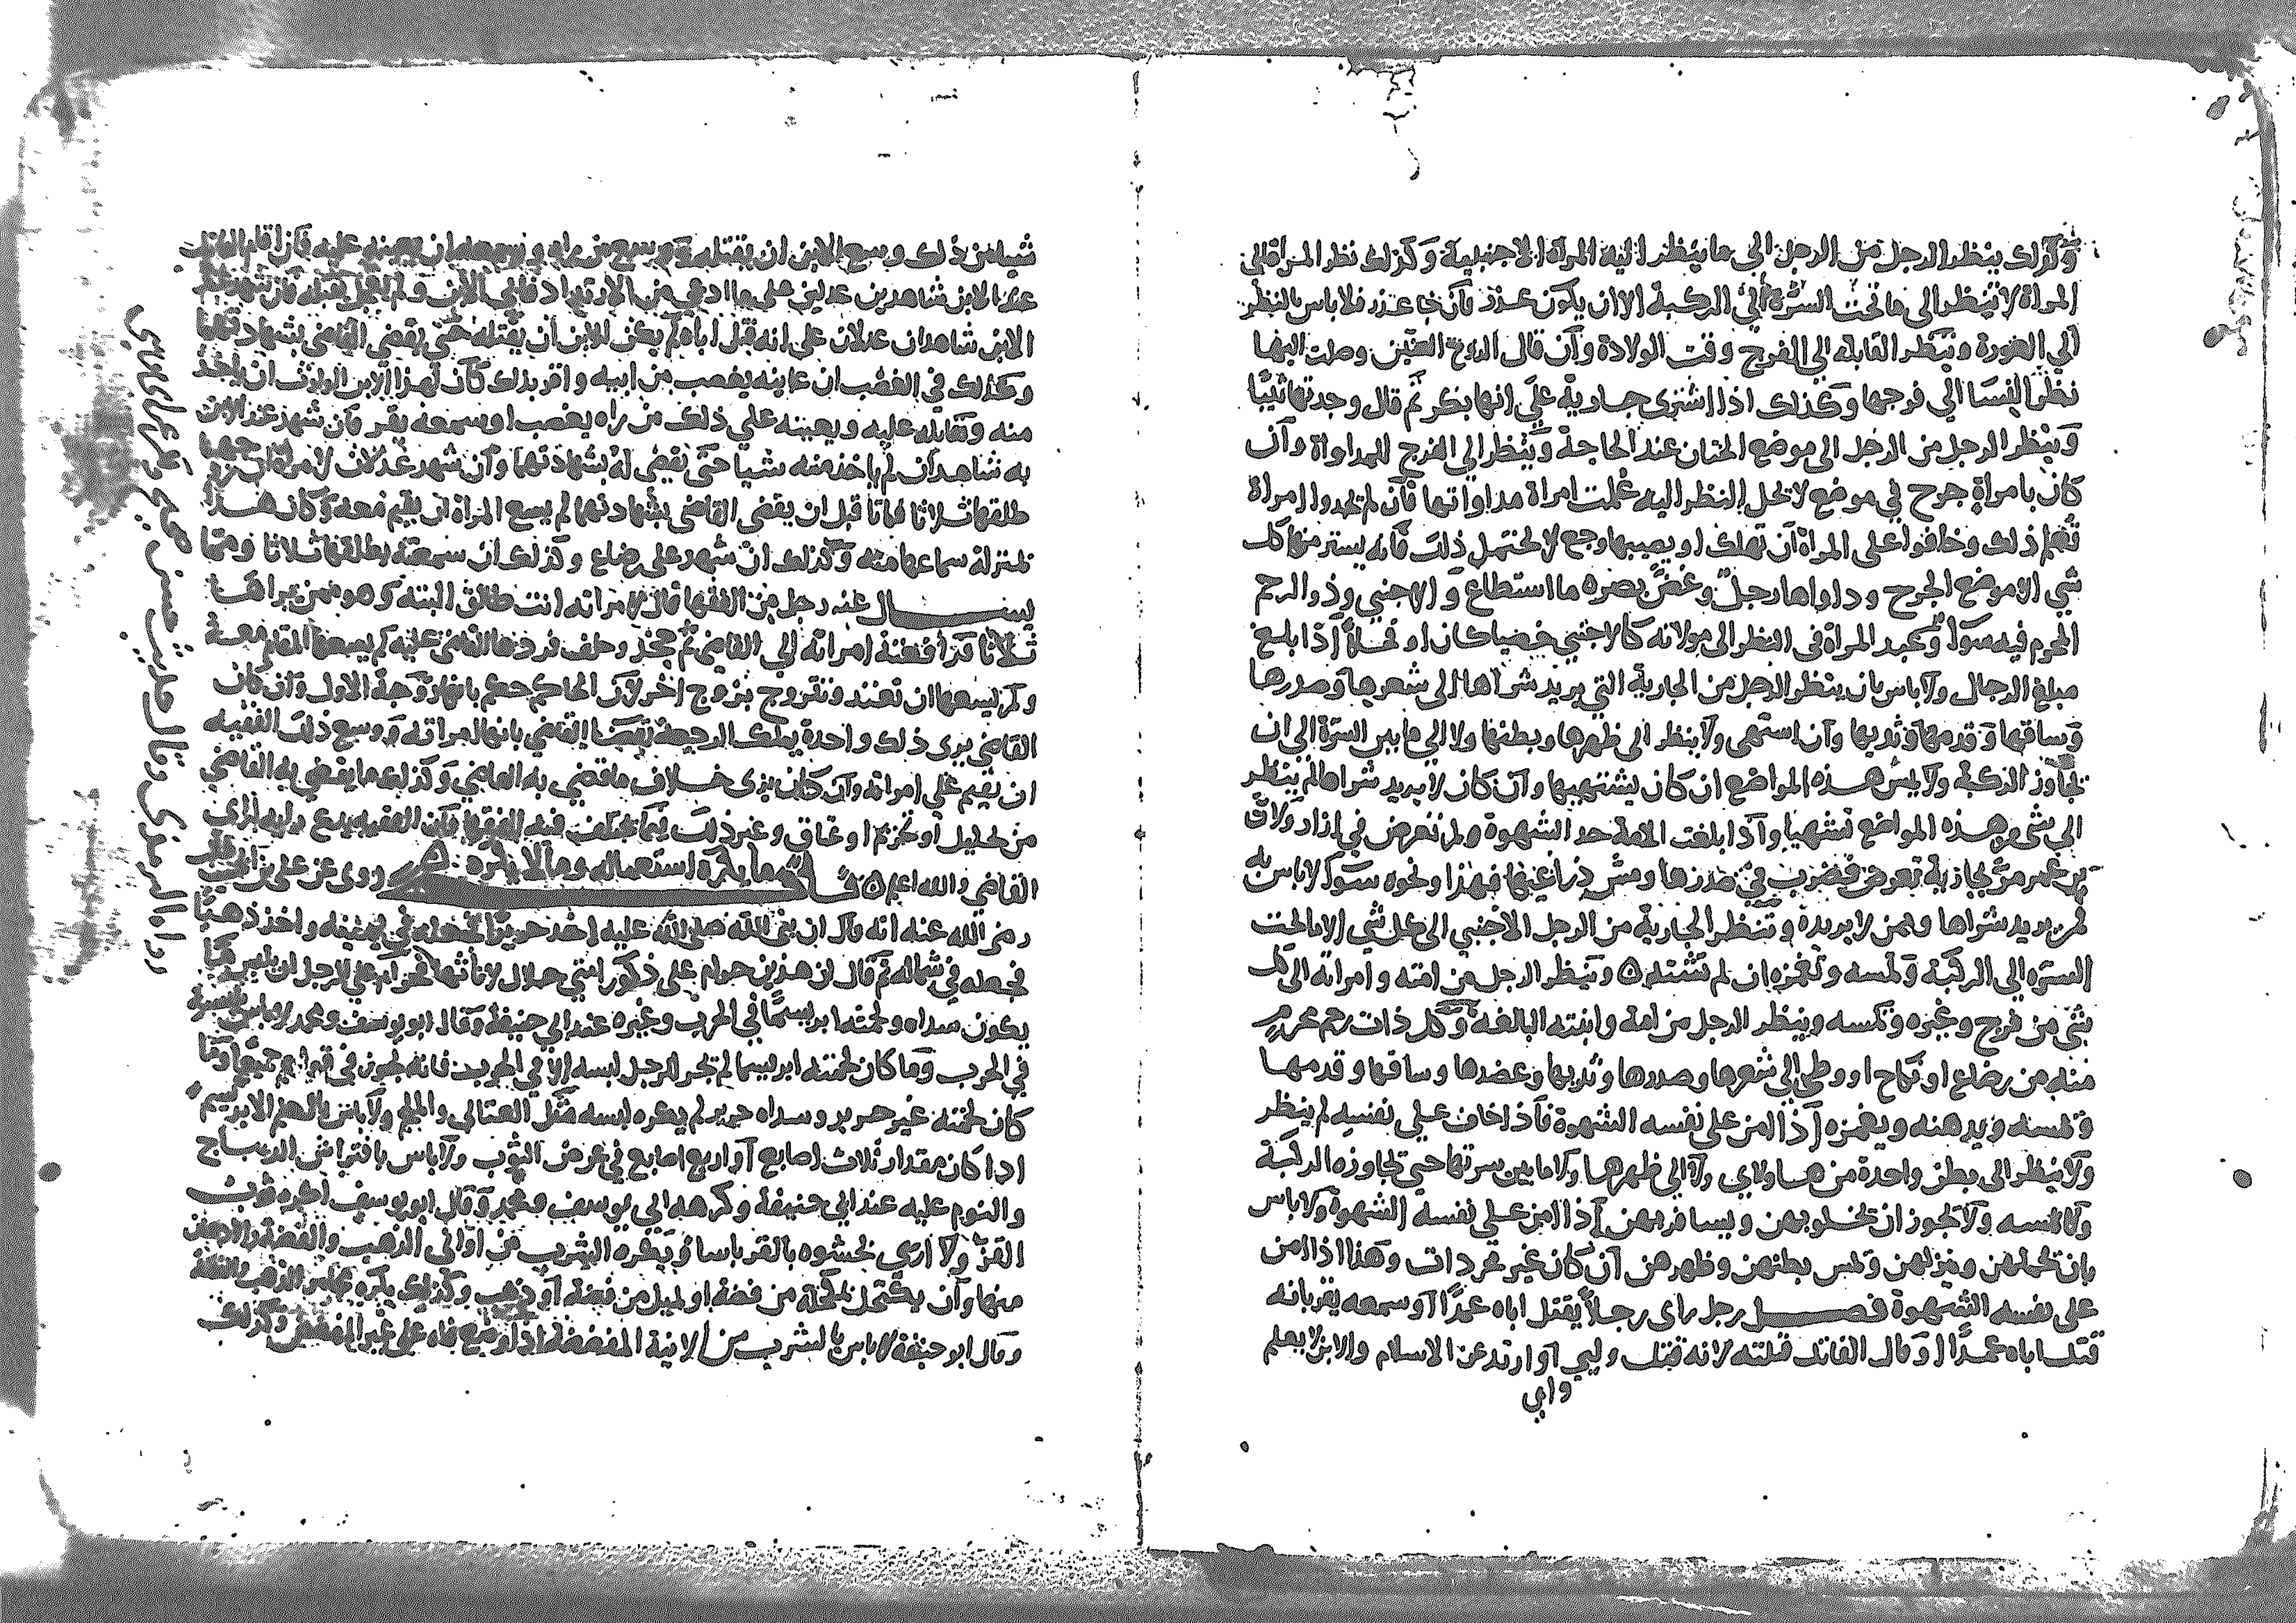 وكذلك ينظر الرجل من الرجل الى ما ينظر اليه المراة الاجنبية وكذلك نظر المراة الى
المراة لا تنظر الى ما تحت السرة الى الركبة الا ان يكون عذر فان جا عذر فلا باس بالنظر
الي العورة وتنظر القابلة الى الفرج وقت الولادة وان قال الزوج العنين وصلت اليها
نظر النسا الي فرجها وكذلك اذا اشترى جارية على انها بكر ثم قال وجدتها ثيبا
وينظر الرجل من الرجل الى موضع الختان عند الحاجة وينظر الى الفرج للمداواة وان
كان بامراة جرح في موضع لا يحل النظر اليه علمت امراة مداواتها فان لم تجدوا امراة
تعلم ذلك وخافوا على المراة ان تهلك او يصيبها وجع لا تحتمل ذلك فانه يستر منها كل
شي الا موضع الجرح وداواها رجل وغض بصره ما استطاع والاجنبي وذو الرحم
المحرم فيه سوا وعبد المراة فى النظر الى مولاته كالاجنبي خصيا كان او فحلا اذا بلغ
مبلغ الرجال ولا باس بان ينظر الرجل من الجارية التي يريد شراها الى شعرها وصدرها
وساقها وقدمها وثديها وان اشتهى ولا ينظر الى ظهرها وبطنها ولا الي ما بين السرة الى ان
تجاوز الركبة ولا يمس هذه المواضع ان كان يشتهيها وان كان لا يريد شراها لم ينظر
الى شي من هذه المواضع تشهيا واذا بلغت الامة حد الشهوة ولم تعرض في ازار ولان
بن عمر مر بجارية تعرض فضرب في صدرها ومس ذراعيها فهذا ونحوه سوا لا باس به
لمن يريد شراها ولمن لا يريده وتنظر الجارية من الرجل الاجنبي الى كل شي الا ما تحت
السرة الى الركبة وتمسه وتغمزه ان لم تشته ه وينظر الرجل من امته وامراته الى كل
شي من فرج وغيره وتمسه وينظر الرجل من امه وابنته البالغة وكل ذات رحم محرم
منه من رضاع او نكاح او وطي الى شعرها وصدرها وثديها وعضدها وساقها وقدمها
وتمسه ويدهنه ويغمزه اذا امن على نفسه الشهوة فاذا خاف على نفسه لم ينظر
ولا ينظر الى بطن واحدة من هاولاي ولا الى ظهرها ولا ما بين سرتها حتي تجاوزه الركبة
ولا تمسه ولا تجوز ان تخلو بهن ويسافر بهن اذا امن على نفسه الشهوة ولا باس
بان تحملهن وينزلهن وتمس بطنهن وظهرهن ان كان غير مجردات وهذا اذا امن
على نفسه الشهوة فصل رجل راى رجلا يقتل اباه عمدا او سمعه يقر بانه
قتل اباه عمدا وقال القاتل قتلته لانه قتل وليي او ارتد عن الاسلام والابن لا يعلم
وابي
شيا من ذلك وسع الابن ان يقتله ووسع من راه وسمعه ان يعينه عليه فان اقام القاتل
عند الابن شاهدين عدلين على ما ادعى من الارتداد فابي الابن ولم يعجل بقتله فان شهد عند
الابن شاهدان عدلان علي انه قتل اباه لم يكن للابن ان يقتله حتى يقضي القاضي بشهادتهما
وكذلك في الغصب ان عاينه يغصب من ابيه واقر بذلك كان لهذا الابن الوارث ان ياخذ
منه وتقاتله عليه ويعينه علي ذلك من راه يغصب او سمعه يقر فان شهد عند الابن
به شاهدان لم ياخذ منه شيا حتى يقضي له بشهادتهما وان شهد عدلان لامراة ان زوجها
طلقها ثلاثا فماتا قبل ان يقضى القاضى بشهادتهما لم يسع المراة ان تقيم معه وكان هذا
بمنزلة سماعها منه وكذلك ان شهد على رضاع وكذلك ان سمعته يطلقها ثلاثا ومما
يسال عنه رجل من الفقها قال لامراته انت طالق البتة وهو ممن يراها
ثلاثا فرافعته امراته الي القاضى ثم جحد وحلف فردها القاضى عليه لم يسعها المقام معه
ولم يسعها ان تعتد وتتزوج بزوج اخر لان الحاكم حكم بانها زوجة الاول وان كان
القاضى يرى ذلك واحدة يملك الرجعة فقضا القاضي بانها امراته ووسع ذلك الفقيه
ان يقيم علي امراته وان كان يرى خلاف ما قضى به القاضي وكذلك ما يقضى به القاضي
من تحليل او تحريم او عتاق وغير ذلك مما يختلف فيه الفقها فان الفقيه يدع رايه لراى
القاضي والله اعلم ه فصل ما يكره استعماله وما لا يكره ه روى عن علي بن ابي طالب
رضى الله عنه انه قال ان نبى الله صلى الله عليه اخذ حريرا فجعله في يمينه واخذ ذهبا
فجعله في شماله ثم قال ان هذين حرام على ذكور امتي حلال لاناثها ولا على الرجل ان يلبس ثوبا
يكون سداه ولحمته ابريسما في الحرب وغيره عند ابي حنيفة وقال ابو يوسف ومحمد لا باس بلبسه
في الحرب وما كان لحمته ابريسما لم تجز للرجل لبسه الا في الحرب فانه تجوز في قولهم جميعا وما
كان لحمته غير حرير وسداه حرير لم يكره لبسه مثل العتابي والملحم ولا باس بالعلم الابريسم
اذا كان مقدار ثلاث اصابع او اربع اصابع في عرض الثوب ولا باس بافتراش الديباج
والنوم عليه عند ابي حنيفة وكرهه ابي يوسف ومحمد وقال ابو يوسف اكره ثوب
القز ولا ارى بحشوه بالقز باسا ويكره الشرب من اواني الذهب والفضة والادهان
منها وان يكتحل بمكحلة من فضة او بميل من فضة او ذهب وكذلك يكره مجامر الذهب والفضة
وقال ابو حنيفة لا باس بالشرب من الانية المفضضة اذا وضع فاه على غير المفضض وكذلك